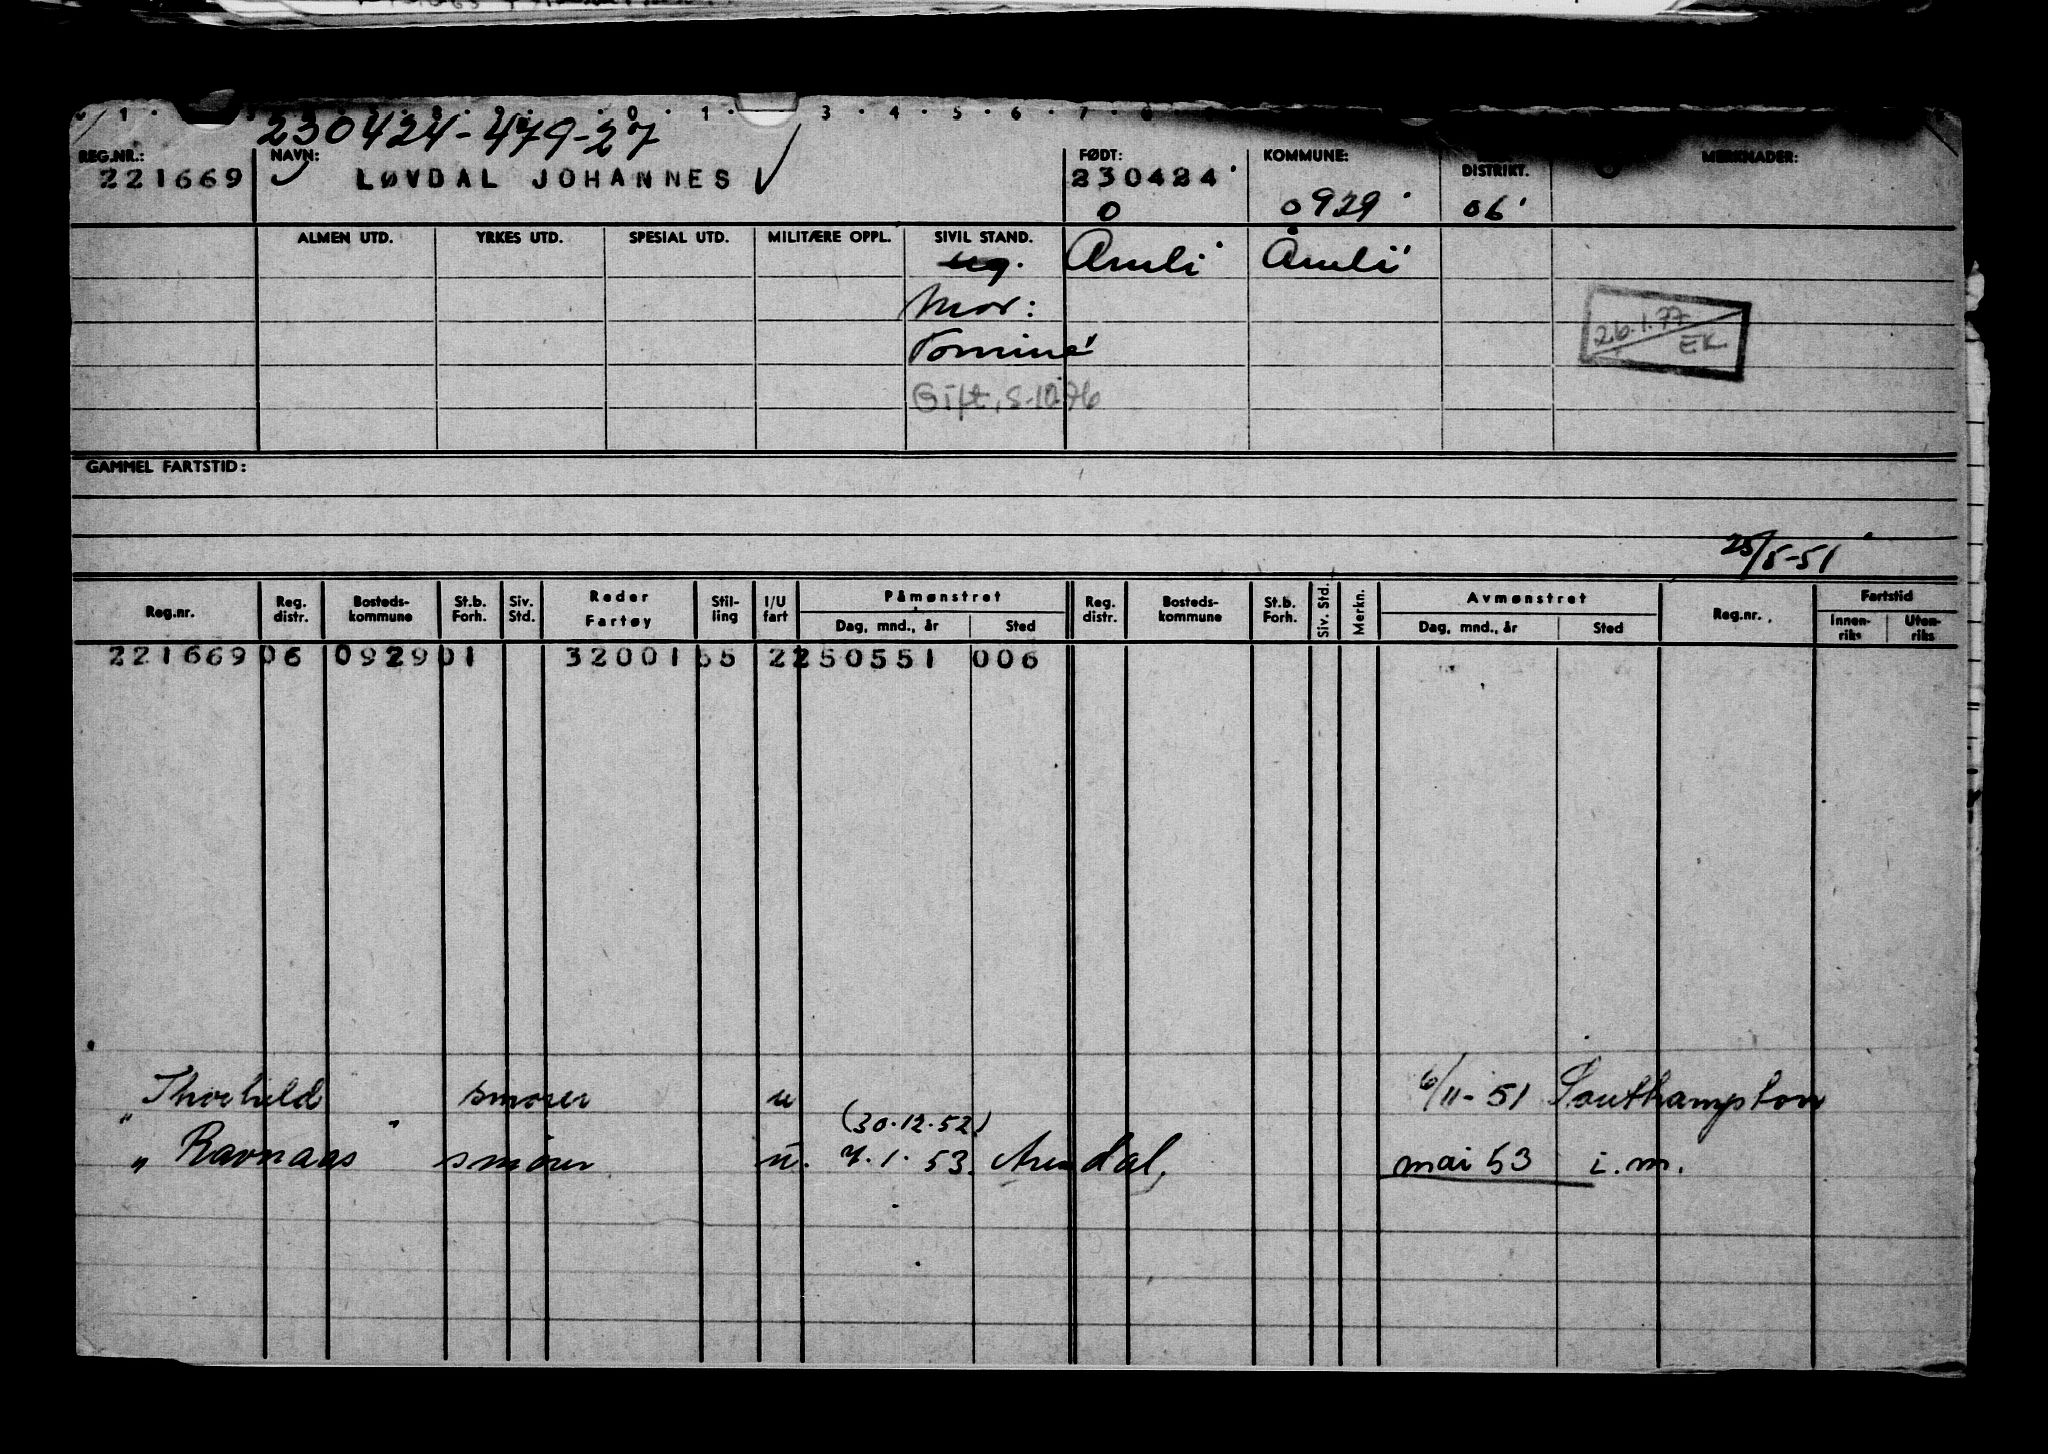 230424-479-27
REG.NR.: NAVN: FØDT: KOMMUNE: DISTRIKT. MERKNADER:
221669 LØVDAL JOHANNES 230424
0 0929 06
ALMEN UTD. YRKES UTD. SPESIAL UTD. MILITÆRE OPPL. SIVIL STAND.
ug. Amli Åmli
Mor:
Gift, S-10.76
26.1.77
EK
GAMMEL FARTSTID:
25/5-51
Reg.nr. Reg. distr. Bosteds- kommune St.b. Forh. Siv. Std. Reder Fartøy Stil- ling I/U fart Påmønstret Dag, mnd., år Sted Reg. distr. Bosteds- kommune St.b. Forh. Siv. Std. Merkn. Avmønstret Dag, mnd., år Sted Reg.nr. Fartstid Innen- riks Uten- riks
221669 06 0929 01 32001 55 2 250551 006
" Thorhild smører u 6/11-51 Southampton
(30.12.52)
" Ravnaas " smører u. 7.1.53. Arendal, mai 53 i.m.